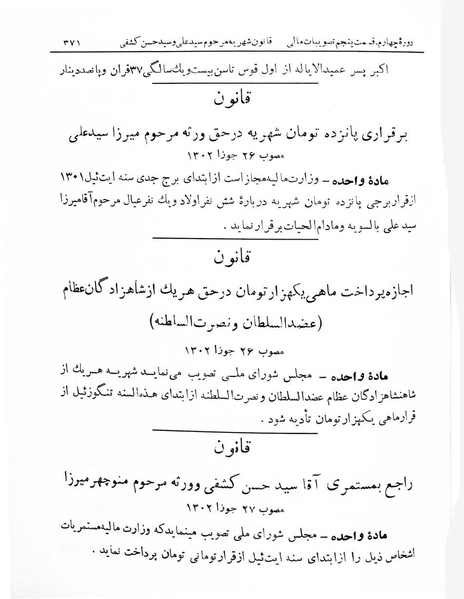 دورهٔ چهارم. قسمت پنجم تصویبات مالی قانون شهریه مرحوم سید علی و سید حسن کشفی ۳۷۱
اکبر پسر عمیدالایاله از اول قوس تاسن بیست ویك سالگی ۳۷ قران و پانصد دینار
قانون
برقراری پانزده تومان شهریه در حق ورثه مرحوم میرزا سید علی
مصوب ۲۶ جوزا ۱۳۰۲
مادهٔ واحده – وزارت مالیه مجاز است از ابتدای برج جدی سنه ایت ئیل ۱۳۰۱
از قرار برجی پانزده تومان شهریه دربارهٔ شش نفر اولاد ویك نفر عیال مرحوم آقا میرزا
سید علی بالسویه و مادام الحیات برقرار نماید .
قانون
اجازه پرداخت ماهی یکهزار تومان در حق هریك از شاهزادگان عظام
(عضد السلطان و نصرت السلطنه)
مصوب ۲۶ جوزا ۱۳۰۲
مادهٔ واحده – مجلس شورای ملی تصویب می نماید شهریه هریك از
شاهنشاهزادگان عظام عضد السلطان و نصرت السلطنه از ابتدای هذه السنه تنگوزئیل از
قرار ماهی یکهزار تومان تأدیه شود .
قانون
راجع بمستمری آقا سید حسن کشفی و ورثه مرحوم منوچهر میرزا
مصوب ۲۷ جوزا ۱۳۰۲
مادهٔ واحده – مجلس شورای ملی تصویب مینماید که وزارت مالیه مستمریات
اشخاص ذیل را از ابتدای سنه ایت ئیل از قرار تومانی تومان پرداخت نماید .